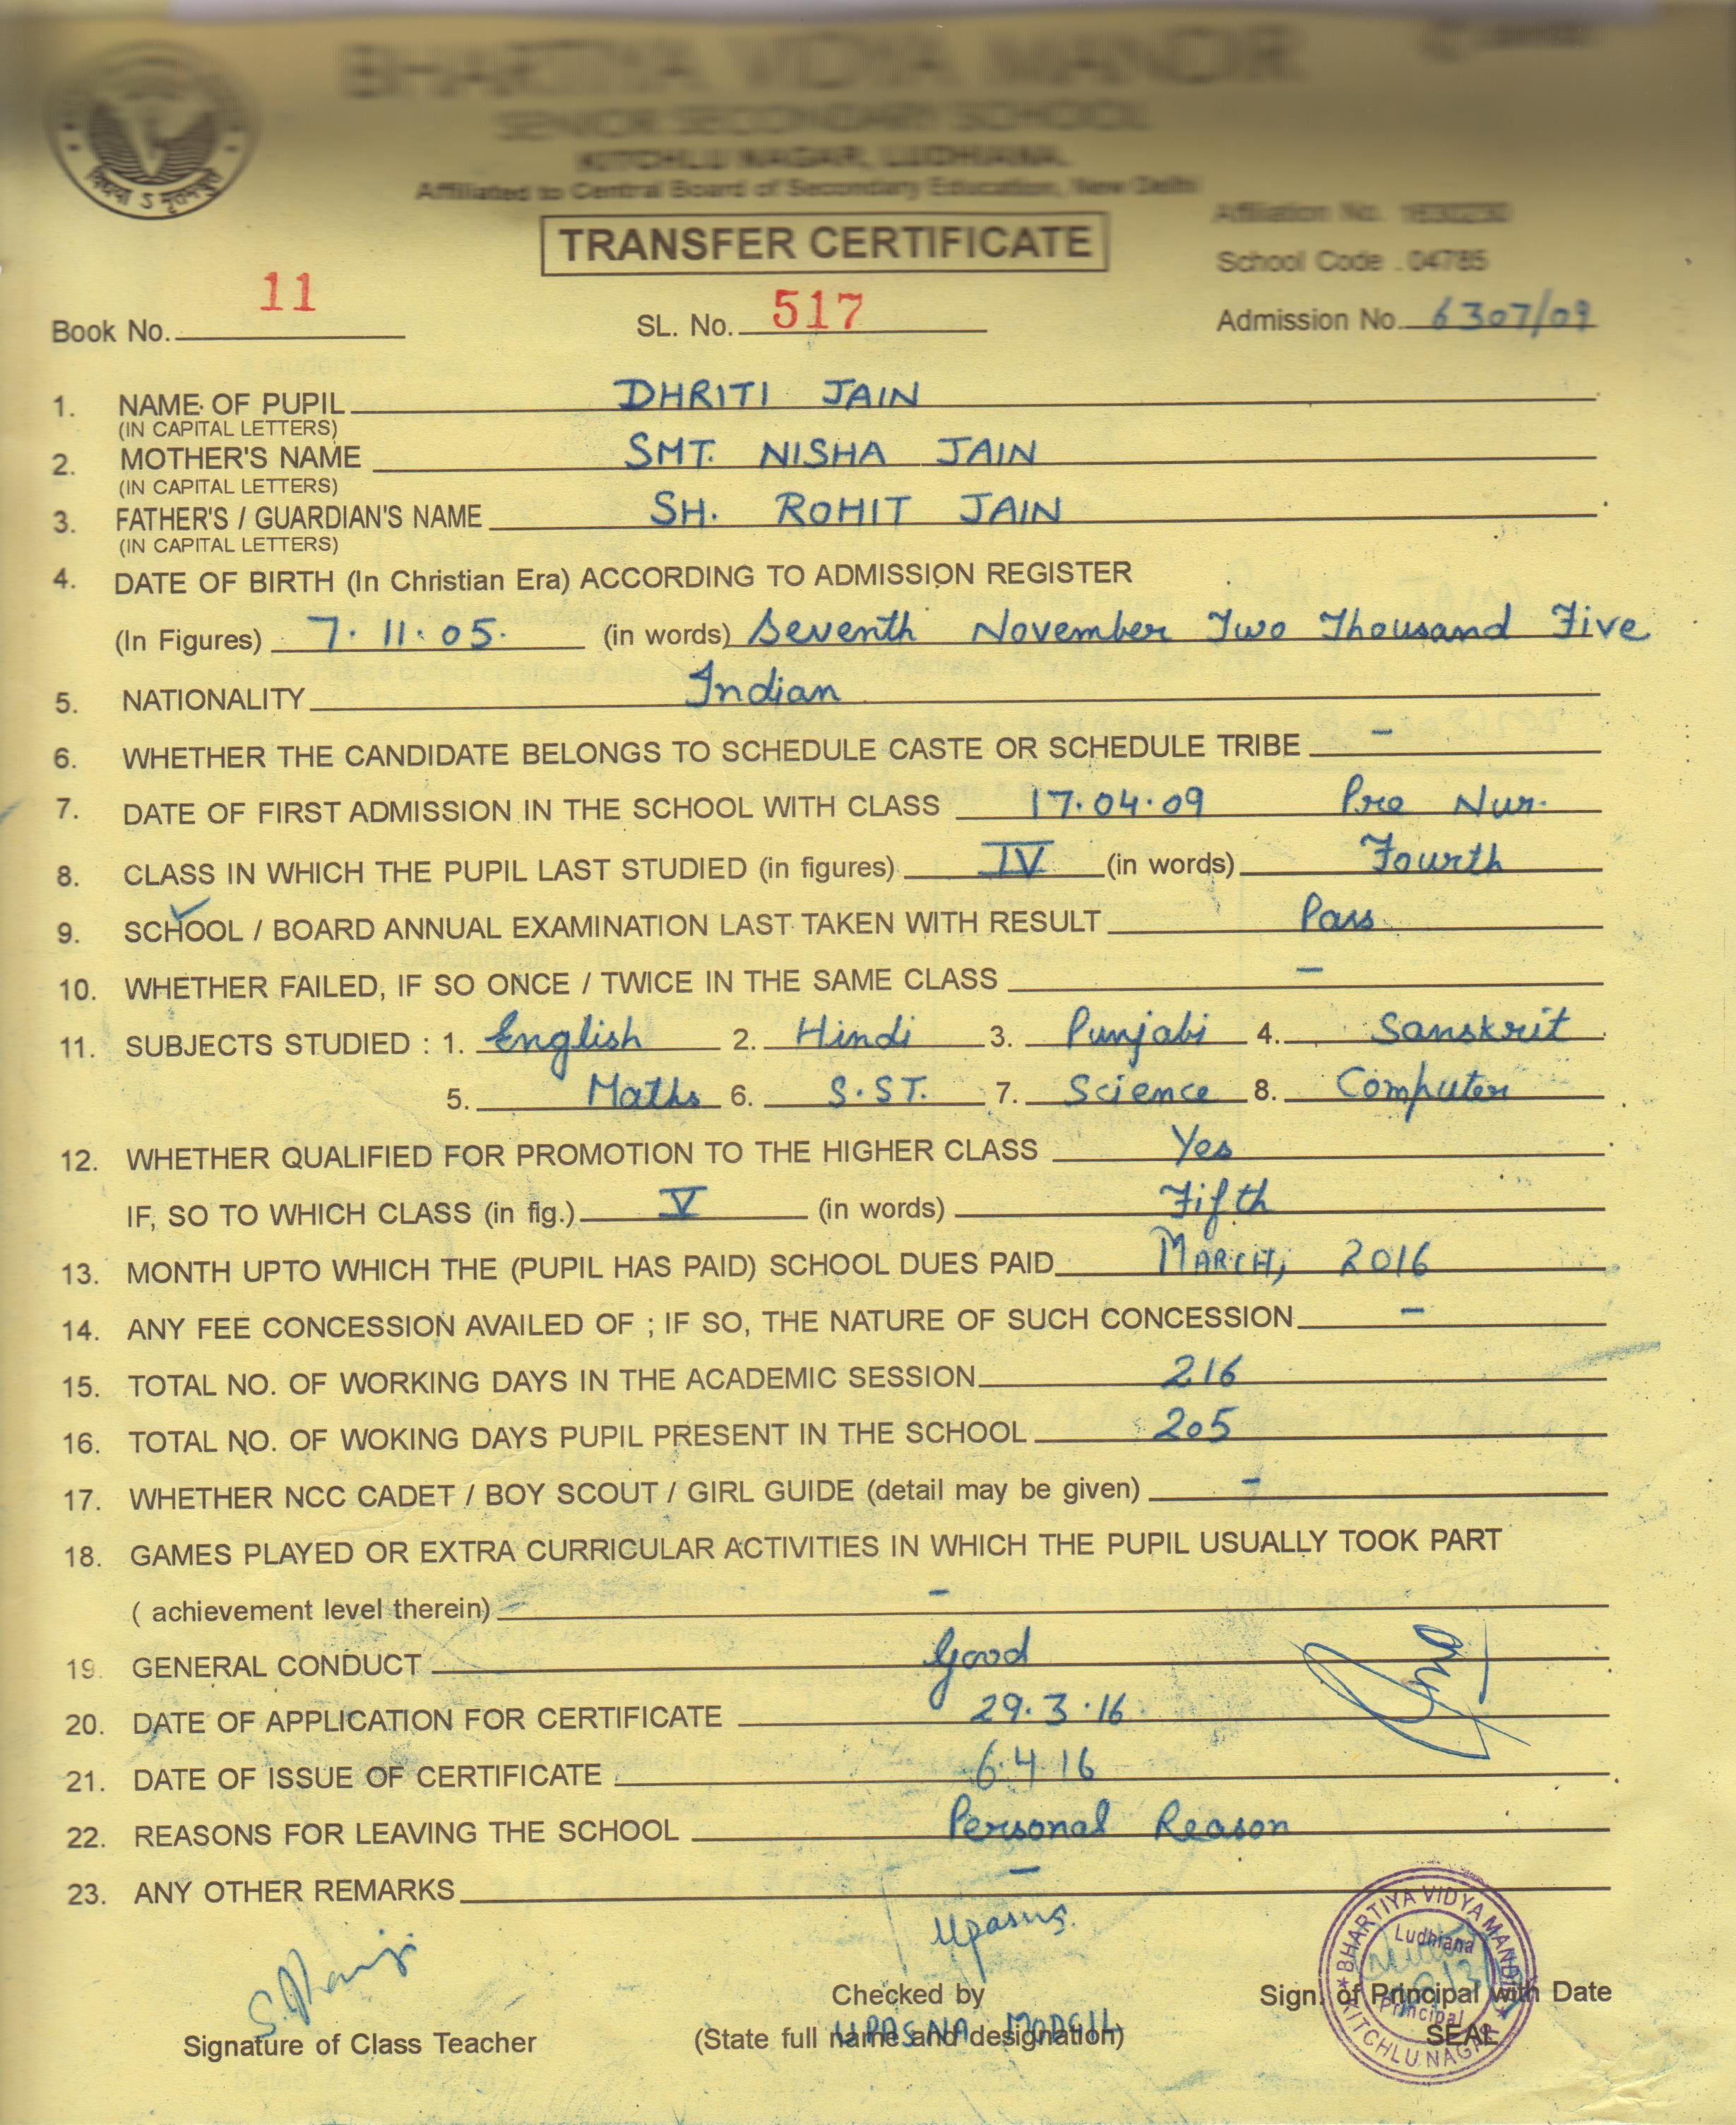 BHARTIYA VIDYA MANDIR
SENIOR SECONDARY SCHOOL
KITCHLU NAGAR, LUDHIANA.
Affiliated to Central Board of Secondary Education, New Delhi
Affiliation No.
TRANSFER CERTIFICATE
School Code . 04785
Book No. 11 SL. No. 517 Admission No. 6307/09
1. NAME OF PUPIL DHRITI JAIN
(IN CAPITAL LETTERS)
2. MOTHER'S NAME SMT. NISHA JAIN
(IN CAPITAL LETTERS)
3. FATHER'S / GUARDIAN'S NAME SH. ROHIT JAIN
(IN CAPITAL LETTERS)
4. DATE OF BIRTH (In Christian Era) ACCORDING TO ADMISSION REGISTER
(In Figures) 7.11.05. (in words) Seventh November Two Thousand Five
5. NATIONALITY Indian
6. WHETHER THE CANDIDATE BELONGS TO SCHEDULE CASTE OR SCHEDULE TRIBE -
7. DATE OF FIRST ADMISSION IN THE SCHOOL WITH CLASS 17.04.09 Pre Nur.
8. CLASS IN WHICH THE PUPIL LAST STUDIED (in figures) IV (in words) Fourth
9. SCHOOL / BOARD ANNUAL EXAMINATION LAST TAKEN WITH RESULT Pass
10. WHETHER FAILED, IF SO ONCE / TWICE IN THE SAME CLASS -
11. SUBJECTS STUDIED : 1. English 2. Hindi 3. Punjabi 4. Sanskrit
5. Maths 6. S.ST. 7. Science 8. Computer
12. WHETHER QUALIFIED FOR PROMOTION TO THE HIGHER CLASS Yes
IF, SO TO WHICH CLASS (in fig.) V (in words) Fifth
13. MONTH UPTO WHICH THE (PUPIL HAS PAID) SCHOOL DUES PAID MARCH, 2016
14. ANY FEE CONCESSION AVAILED OF ; IF SO, THE NATURE OF SUCH CONCESSION -
15. TOTAL NO. OF WORKING DAYS IN THE ACADEMIC SESSION 216
16. TOTAL NO. OF WOKING DAYS PUPIL PRESENT IN THE SCHOOL 205
17. WHETHER NCC CADET / BOY SCOUT / GIRL GUIDE (detail may be given) -
18. GAMES PLAYED OR EXTRA CURRICULAR ACTIVITIES IN WHICH THE PUPIL USUALLY TOOK PART
( achievement level therein) -
19. GENERAL CONDUCT Good
20. DATE OF APPLICATION FOR CERTIFICATE 29.3.16
21. DATE OF ISSUE OF CERTIFICATE 6.4.16
22. REASONS FOR LEAVING THE SCHOOL Personal Reason
23. ANY OTHER REMARKS -
Upasna
Signature of Class Teacher
Checked by
(State full name and designation)
UPASNA MODGIL
Sign. of Principal with Date
SEAL
BHARTIYA VIDYA MANDIR
KITCHLU NAGAR
Ludhiana
Principal